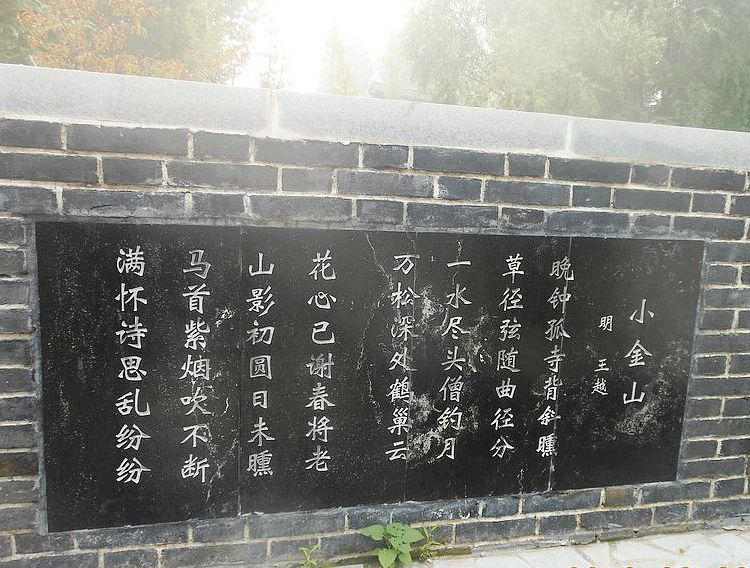 小金山
明 王越
晚钟孤寺背斜曛
草径弦随曲径分
一水尽头僧钓月
万松深处鹤巢云
花心已谢春将老
山影初圆日未曛
马首紫烟吹不断
满怀诗思乱纷纷